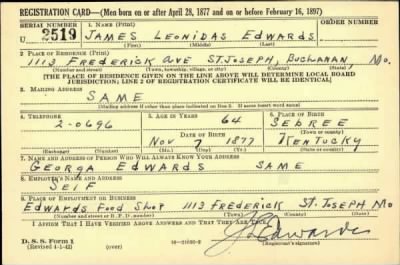 REGISTRATION CARD—(Men born on or after April 28, 1877 and on or before February 16, 1897)
SERIAL NUMBER 1. NAME (Print) ORDER NUMBER
U 2519 JAMES LEONIDAS EDWARDS
(First) (Middle) (Last)
2. PLACE OF RESIDENCE (Print)
1113 FREDERICK AVE ST. JOSEPH, BUCHANAN, MO.
(Number and street) (Town, township, village, or city) (County) (State)
[THE PLACE OF RESIDENCE GIVEN ON THE LINE ABOVE WILL DETERMINE LOCAL BOARD
JURISDICTION; LINE 2 OF REGISTRATION CERTIFICATE WILL BE IDENTICAL]
3. MAILING ADDRESS
SAME
[Mailing address if other than place indicated on line 2. If same insert word same]
4. TELEPHONE 5. AGE IN YEARS 6. PLACE OF BIRTH
2-0696 64 SEBREE
DATE OF BIRTH (Town or county)
NOV 7 1877 KENTUCKY
(Exchange) (Number) (Mo.) (Day) (Yr.) (State or country)
7. NAME AND ADDRESS OF PERSON WHO WILL ALWAYS KNOW YOUR ADDRESS
GEORGA EDWARDS SAME
8. EMPLOYER'S NAME AND ADDRESS
SELF
9. PLACE OF EMPLOYMENT OR BUSINESS
EDWARDS FOOD SHOP 1113 FREDERICK ST. JOSEPH MO
(Number and street or R. F. D. number) (Town) (County) (State)
I AFFIRM THAT I HAVE VERIFIED ABOVE ANSWERS AND THAT THEY ARE TRUE.
D. S. S. Form 1 Edwards
(Revised 4-1-42) 16—21630-2 (Registrant's signature)